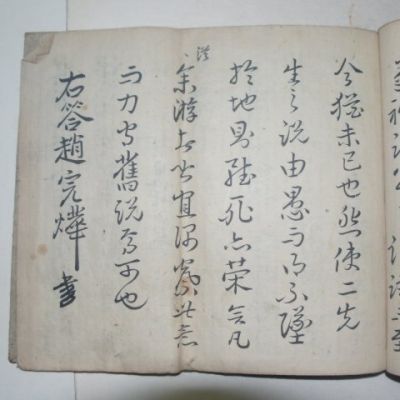 今猶未已也然使二先
生之說由愚而得不墜
於地則雖死亦榮矣凡
余游者皆宜深察此意
而力守舊說爲可也
右答趙完燁書